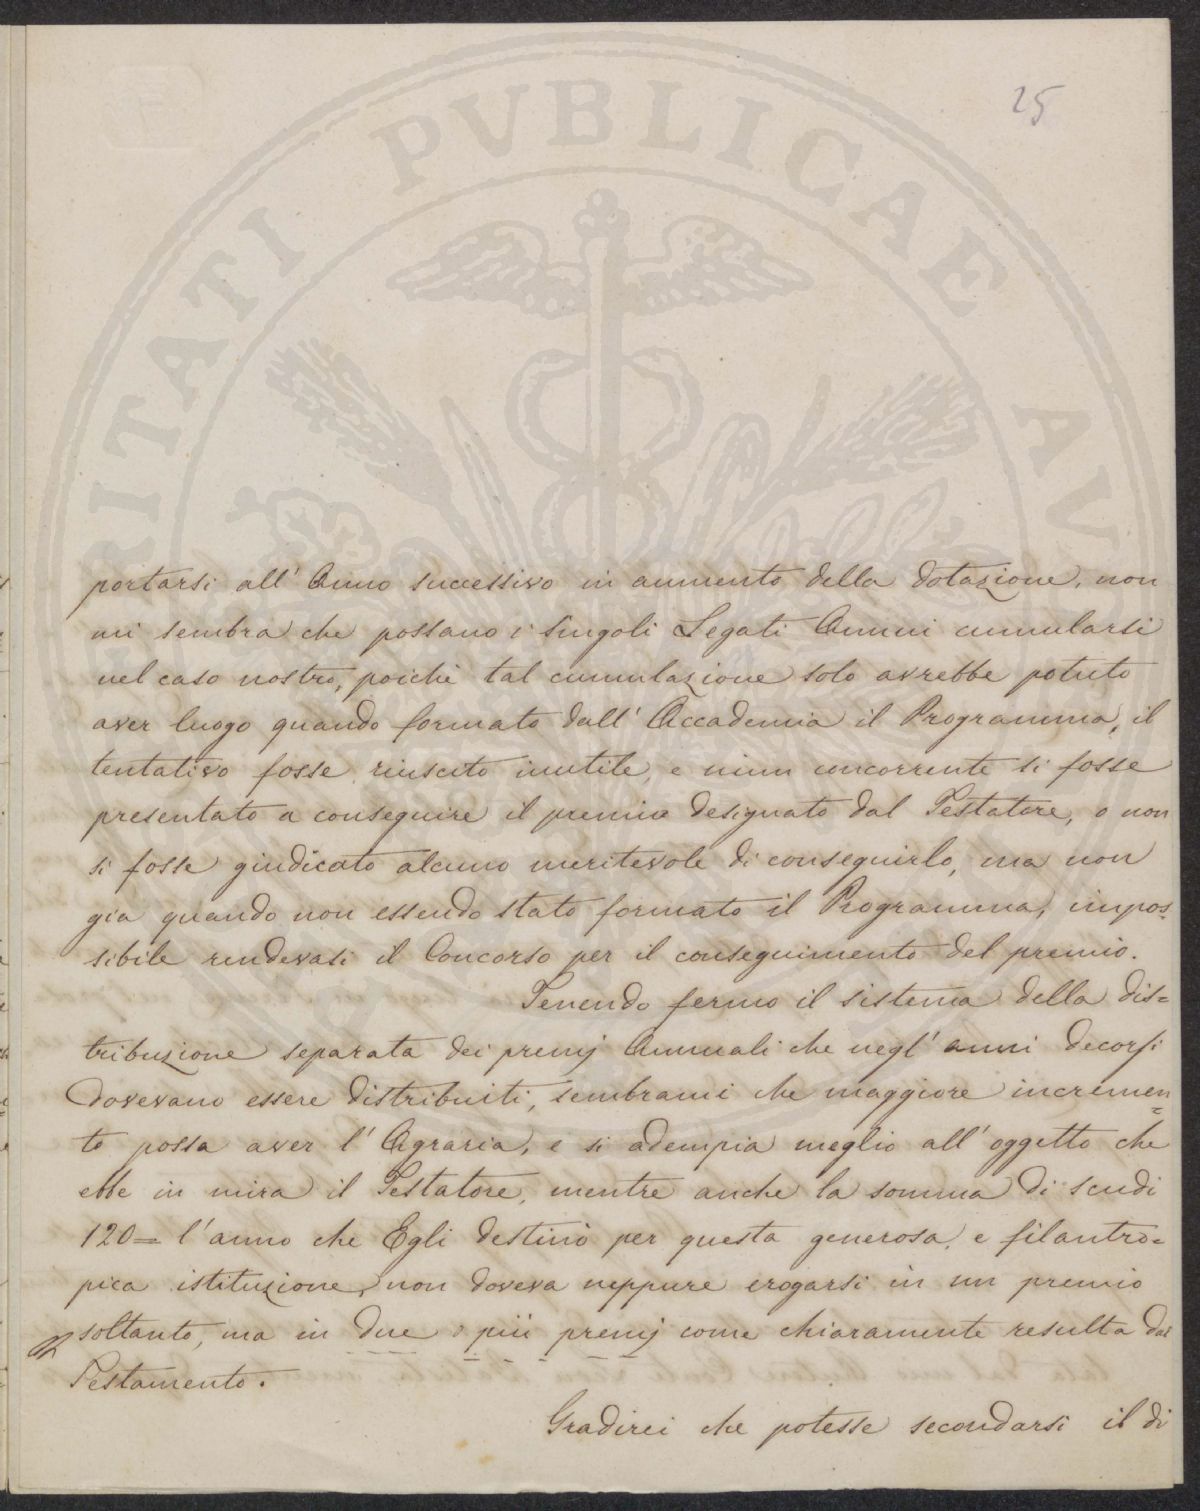 25
RITATI PVBLICAE AV
portarsi all' Anno successivo in aumento della dotazione, non
mi sembra che possano i singoli Legati Annui cumularsi
nel caso nostro, poichè tal cumulazione solo avrebbe potuto
aver luogo quando formato dall' Accademia il Programma, il
tentativo fosse riuscito inutile, e niun concorrente si fosse
presentato a conseguire il premio designato dal Testatore, o non
si fosse giudicato alcuno meritevole di conseguirlo, ma non
gia quando non essendo stato formato il Programma, impos=
sibile rendevasi il Concorso per il conseguimento del premio.
Tenendo fermo il sistema della dis=
tribuzione separata dei premj Annuali che negl' anni decorsi
dovevano essere distribuiti, sembrami che maggiore incremen=
to possa aver l' Agraria, e si adempia meglio all' oggetto che
ebbe in mira il Testatore, mentre anche la somma di scudi
120= l'anno che Egli destinò per questa generosa, e filantro=
pica istituzione, non doveva neppure erogarsi in un premio
soltanto, ma in due o più premj come chiaramente resulta dal
Testamento.
Gradirei che potesse secondarsi il di